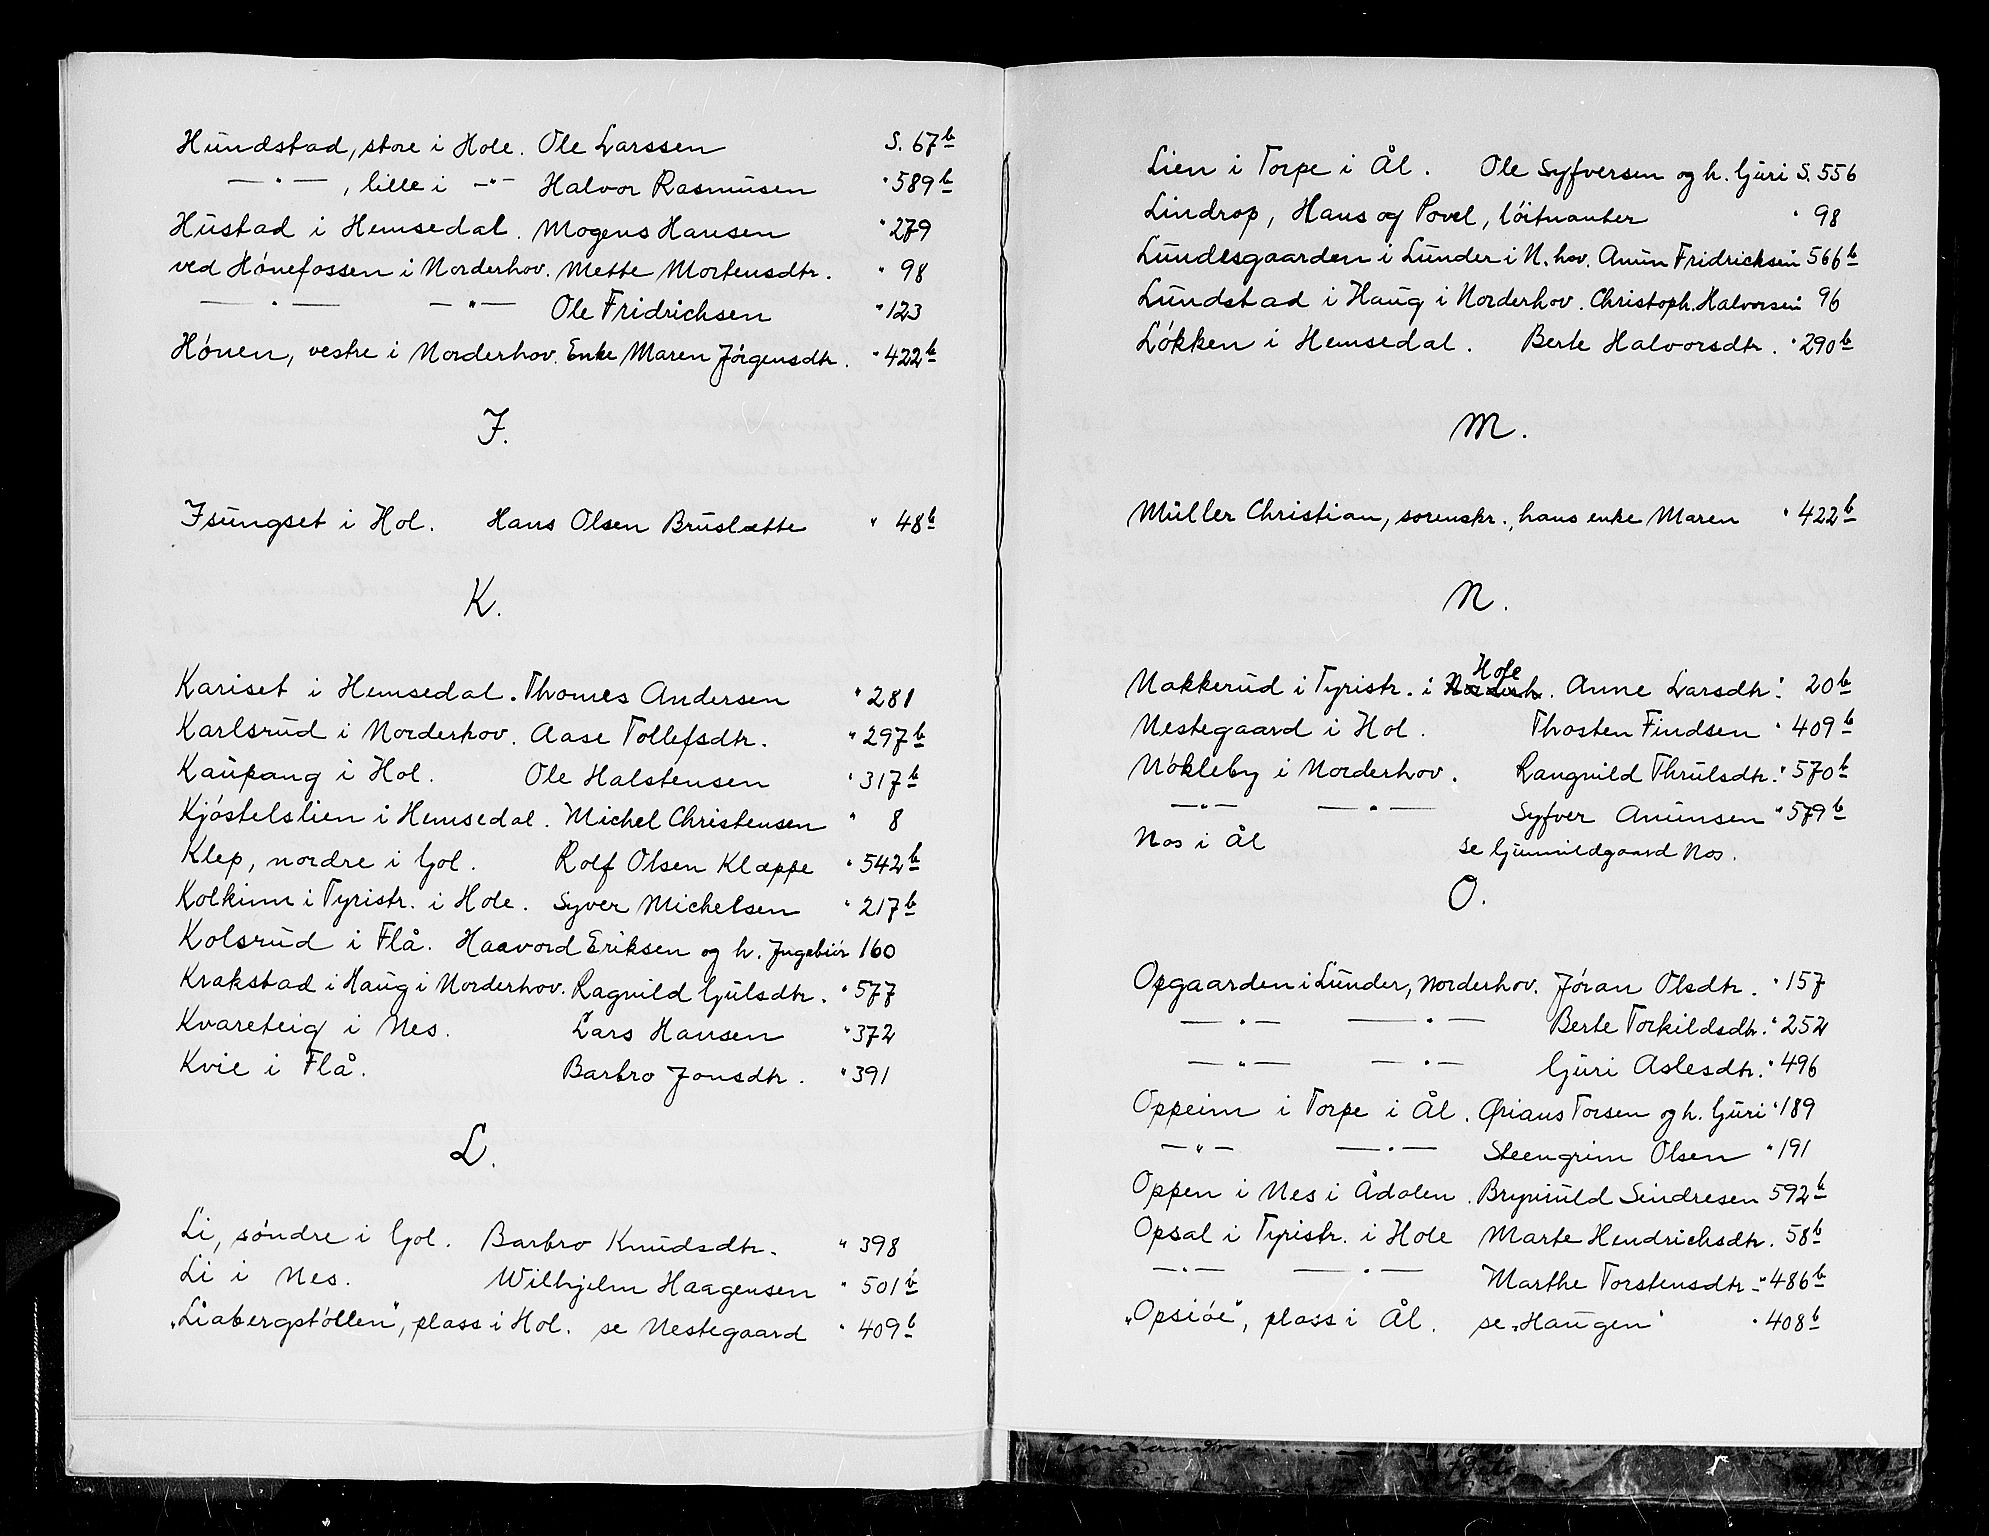 Hundstad, store i Hole. Ole Larssen S. 67b
—"—, lille i —"— Halvor Rasmusen " 589b
Hustad i Hemsedal. Mogens Hansen " 279
ved Hönefossen i Norderhov. Mette Mortensdtr. " 98
—"— —"— Ole Fridrichsen " 123
Hönen, vestre i Norderhov. Enke Maren Jörgensdtr. " 422b
I.
Isungset i Hol. Hans Olsen Bruslætte " 48b
K.
Kariset i Hemsedal. Thomes Andersen " 281
Karlsrud i Norderhov. Aase Tollefsdtr. " 297b
Kaupang i Hol. Ole Halstensen " 317b
Kjöstelslien i Hemsedal. Michel Christensen " 8
Klep, nordre i Gol. Rolf Olsen Klæppe " 542b
Kolkinn i Tyristr. i Hole. Syver Michelsen " 217b
Kolsrud i Flå. Haavord Eriksen og h. Ingebiör 160
Krakstad i Haug i Norderhov. Ragnild Gulsdtr. " 577
Kvareteig i Nes. Lars Hansen " 372
Kvie i Flå. Barbro Jonsdtr. " 391
L.
Li, söndre i Gol. Barbro Knudsdtr. " 398
Li i Nes. Wilhjelm Haagensen " 501b
"Liabergstöllen", plass i Hol. se Nestegaard " 409b
Lien i Torpe i Ål. Ole Syfversen og h. Guri S. 556
Lindrop, Hans og Povel, löitnanter " 98
Lundesgaarden i Lunder i N.hov. Amun Fridricksen 566b
Lundstad i Haug i Norderhov. Christoph. Halvorsen 96
Lökken i Hemsedal. Berte Halvorsdtr. " 290b
M.
Müller Christian, sorenskr., hans enke Maren " 422b
N.
Nakkerud i Tyristr. i Hole. Anne Larsdtr. " 20b
Nestegaard i Hol. Thosten Findsen " 409b
Nökleby i Norderhov. Rangnild Thrulsdtr. " 570b
—"— —"— Syfver Amunsen " 579b
Nos i Ål se Gunnildgaard Nos.
O.
Opgaarden i Lunder, Norderhov. Jöran Olsdtr. " 157
—"— —"— Berte Torkildsdtr. " 252
—"— —"— Guri Aslesdtr. " 496
Oppeim i Torpe i Ål. Örians Torsen og h. Guri " 189
—"— —"— Steengrim Olsen " 191
Oppen i Nes i Ådalen. Brynnuld Sindresen 592b
Opsal i Tyristr. i Hole Marte Hendrichsdtr. 58b
—"— —"— Marthe Torstensdtr. " 486b
"Opsiöe", plass i Ål. se "Haugen" " 408b